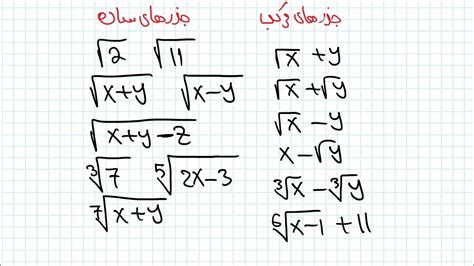 جذرهای ساده
√2 √11
√(x+y) √(x-y)
√(x+y-z)
³√7 ⁵√(2x-3)
⁷√(x+y)
جذرهای مرکب
√x + y
√x + √y
√x - y
x - √y
³√x - ³√y
⁶√(x-1) + 11